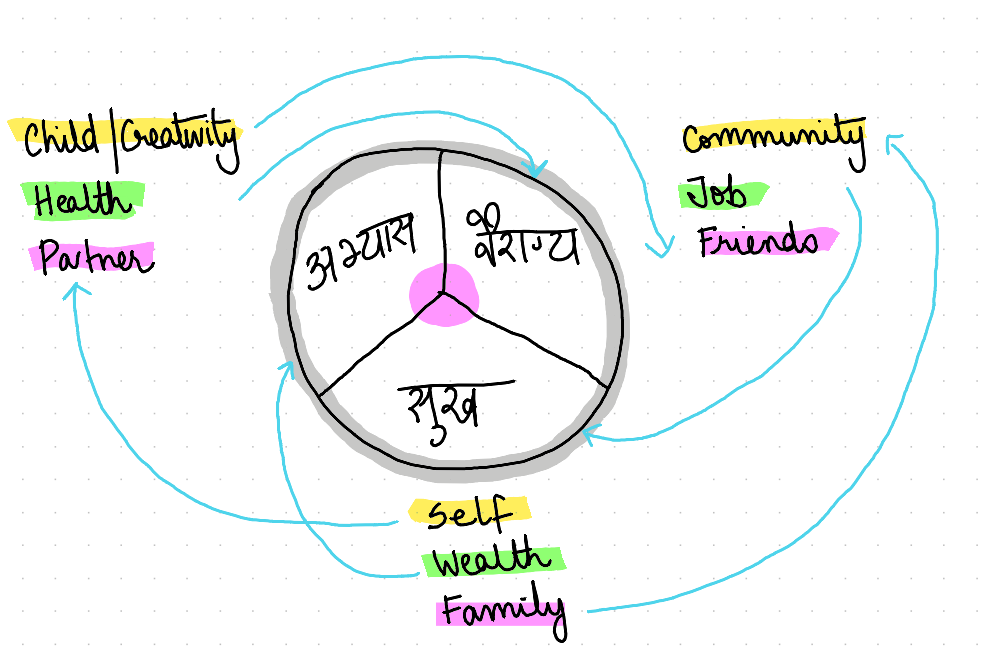 Child/Creativity
Health
Partner
Community
Job
Friends
अभ्यास
वैराग्य
सुख
Self
Wealth
Family